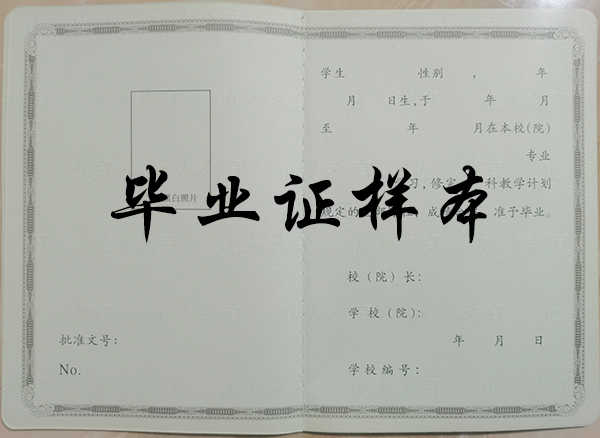 毕业证样本
白照片
批准文号：
No.
学生 性别 ， 年
月 日生，于 年 月
至 年 月在本校(院)
专业
习，修完 科教学计划
规定的 成 准予毕业。
校（院）长：
学 校（院）：
年 月 日
学校编号：